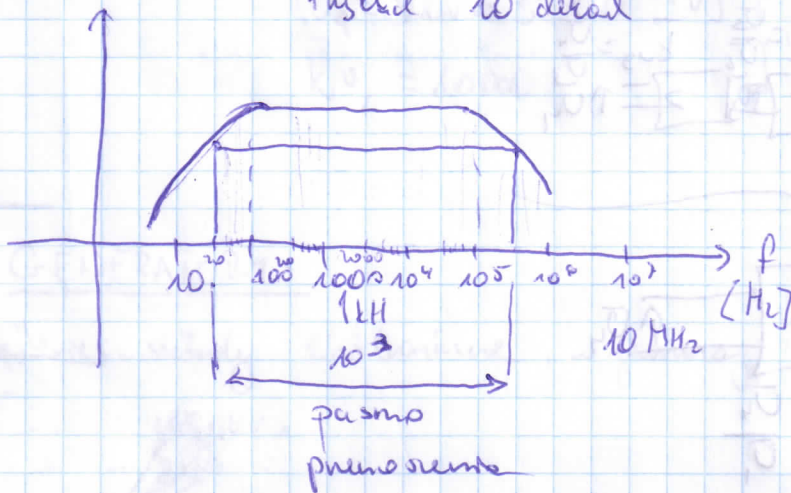 10 dekad
20 200 2000
10 100 1000 10⁴ 10⁵ 10⁶ 10⁷
f
[Hz]
1kH
10 MHz
10³
pasmo
przenoszenia